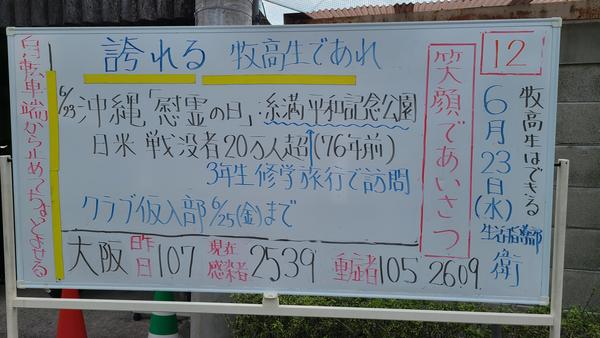 12
牧高生はできる
6月23日(水)
生活指導部
衛
笑顔であいさつ
誇れる 牧高生であれ
6/23 沖縄「慰霊の日」:糸満平和記念公園
日米戦没者20万人超(76年前)
3年生修学旅行で訪問
クラブ仮入部 6/25(金)まで
大阪 昨日 107 現在感染者 2539 重症者 105 2609
自転車端から止めてちなどよせる